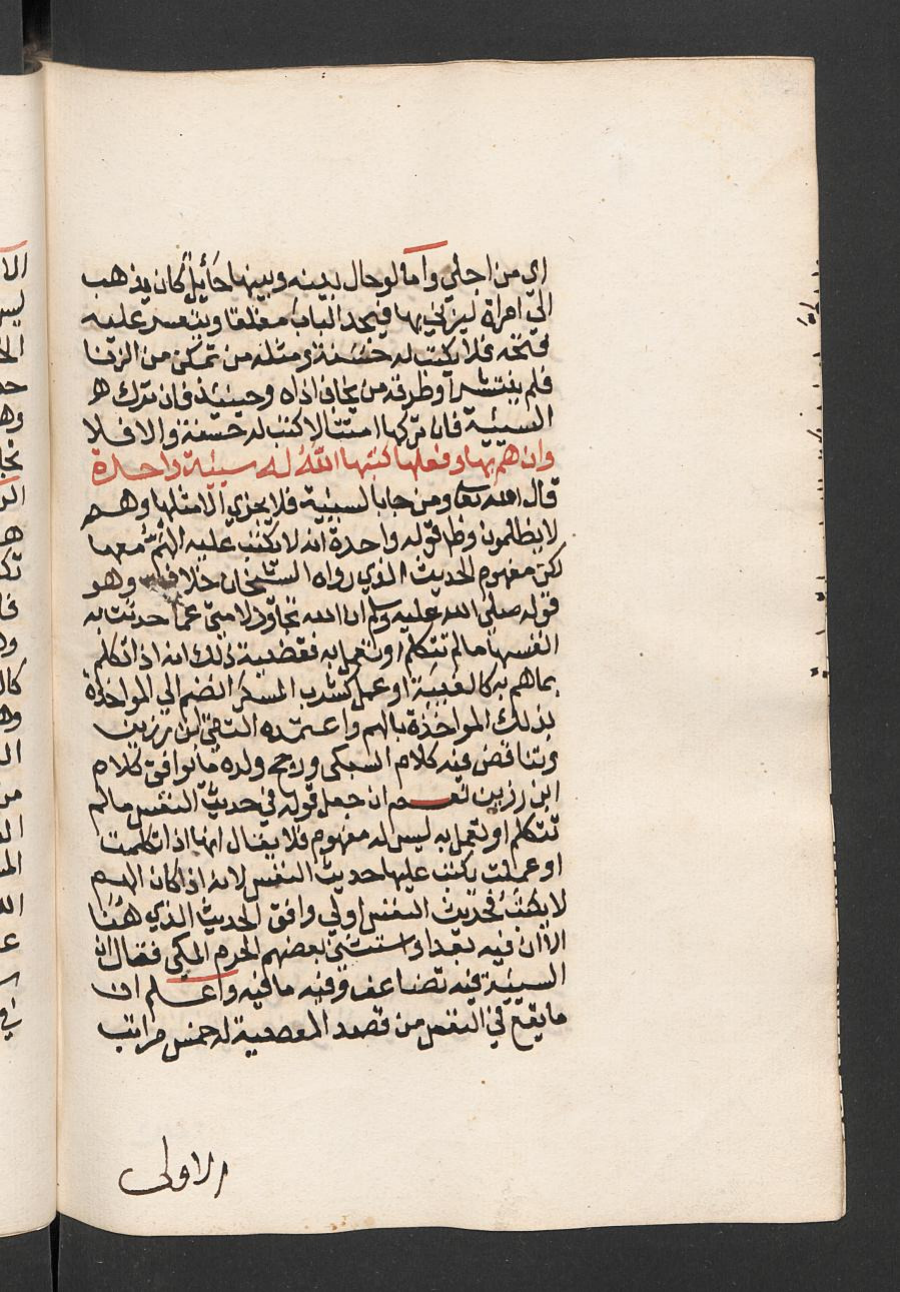 اى من اجلي واما لو حال بينه وبينها حَائِلٌ كان يذهب
الى امراة ليزني بها فيجد الباب مغلقا ويتعسر عليه
فتحه فلا يكتب له حسنة ومثله من تمكن من الزنا
فلم ينتشر اوطرقه من يخاف اذاه وحينئذ فان ترك هو
السيئية فان تركها امتثالا كتب له حسنة والا فلا
وان هم بها وفعلها كتبها اللهُ له سيئة واحدة
قال الله تعا ومن جا بالسيئية فلا يجزي الا مثلها وهم
لا يظلمون وظا قوله واحدة انه لا يكتب عليه الهَمُّ معها
لكن مفهوم الحديث الذي رواه الشيخان خلافه وهو
قوله صلى الله عليه وسلم ان الله تجاوز لامتي عما حدثت به
انفسها ما لم تتكلم او تعمل به فقضية ذلك انه اذا تكلم
بما هم به كالغيبة او عمل كشرب المسكر انضم الى المواخذة
بذلك المواخذة بالهم واعتمده التقي ابن رزين
وتناقض فيه كلام السبكى ورجح ولده ما يوافق كلام
ابن رزين نعم ان جعل قوله في حديث النفس ما لم
تتكلم او تعمل به ليس له مفهوم فلا يقال انها اذا تكلمت
او عملت يكتب عليها حديث النفس لانه اذا كان الهم
لا يكتبُ فحديث النفس اولى وافق الحديث الذي هُنا
الا ان فيه بعدا واستثنى بعضهم الحرم المكي فقال ان
السيئية فيه تضاعف وفيه ما فيه واعلم ان
ما يقع في النفس من قصد المعصية له خمس مراتب
الاولى